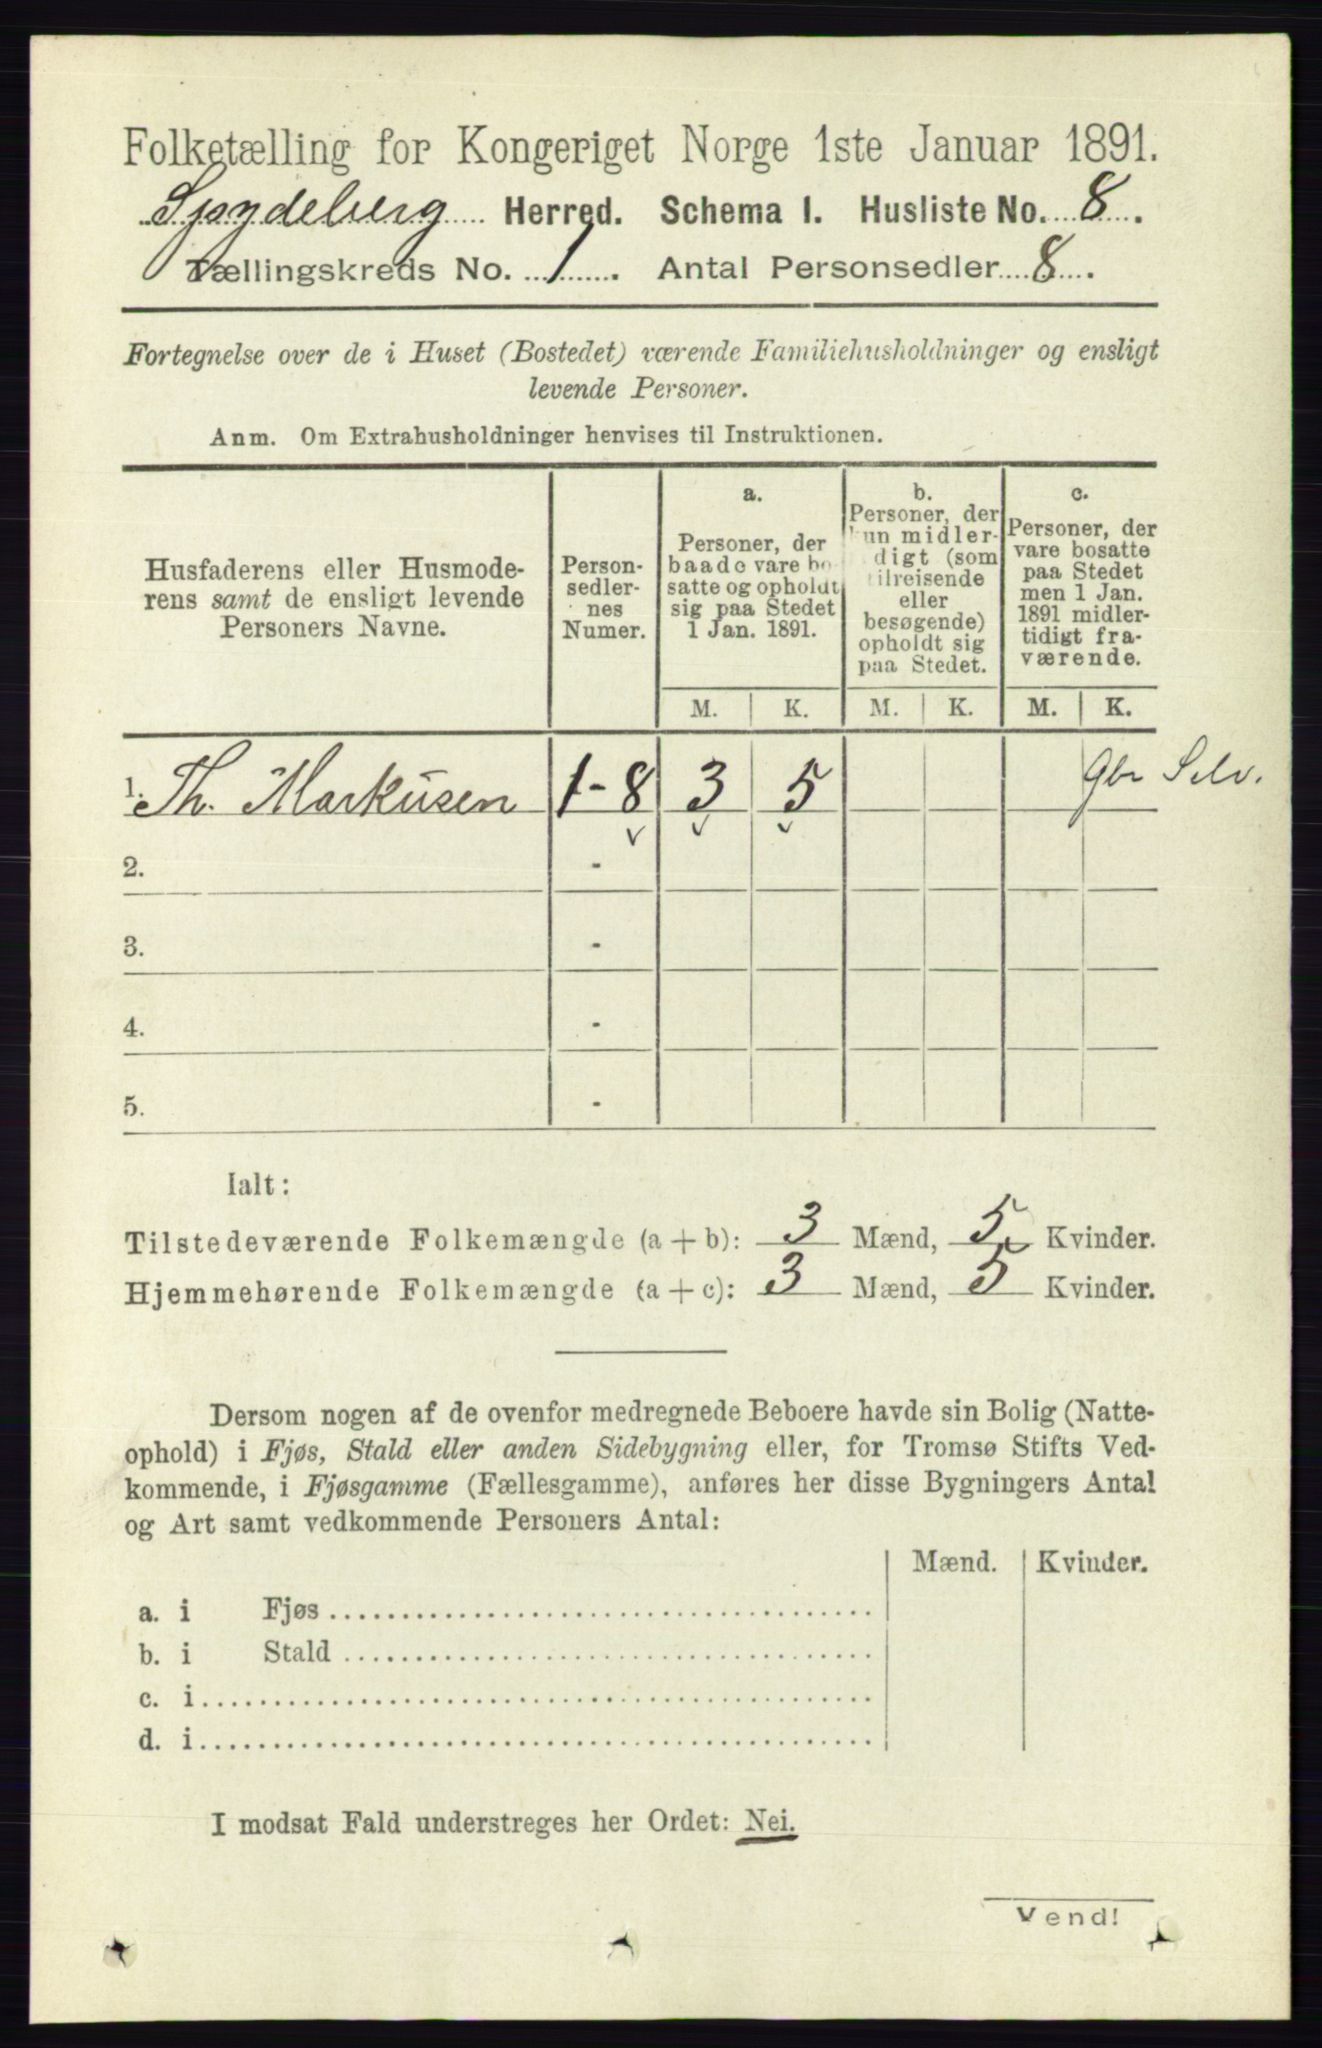 Folketælling for Kongeriget Norge 1ste Januar 1891.
Spydeberg Herred. Schema 1. Husliste No. 8.
Tællingskreds No. 1. Antal Personsedler 8.
Fortegnelse over de i Huset (Bostedet) værende Familiehusholdninger og ensligt
levende Personer.
Anm. Om Extrahusholdninger henvises til Instruktionen.
Husfaderens eller Husmode-
rens samt de ensligt levende
Personers Navne.
Person-
sedler-
nes
Numer.
a.
Personer, der
baade vare bo-
satte og opholdt
sig paa Stedet
1 Jan. 1891.
b.
Personer, der
kun midler-
digt (som
tilreisende
eller
besøgende)
opholdt sig
paa Stedet.
c.
Personer, der
vare bosatte
paa Stedet
men 1 Jan.
1891 midler-
tidigt fra-
værende.
M. K. M. K. M. K.
1. Th. Markusen 1-8 3 5 Gbr Selv.
2. -
3. -
4. -
5. -
Ialt:
Tilstedeværende Folkemængde (a + b): 3 Mænd, 5 Kvinder.
Hjemmehørende Folkemængde (a + c): 3 Mænd, 5 Kvinder.
Dersom nogen af de ovenfor medregnede Beboere havde sin Bolig (Natte-
ophold) i Fjøs, Stald eller anden Sidebygning eller, for Tromsø Stifts Ved-
kommende, i Fjøsgamme (Fællesgamme), anføres her disse Bygningers Antal
og Art samt vedkommende Personers Antal:
Mænd. Kvinder.
a. i Fjøs
b. i Stald
c. i
d. i
I modsat Fald understreges her Ordet: Nei.
Vend!